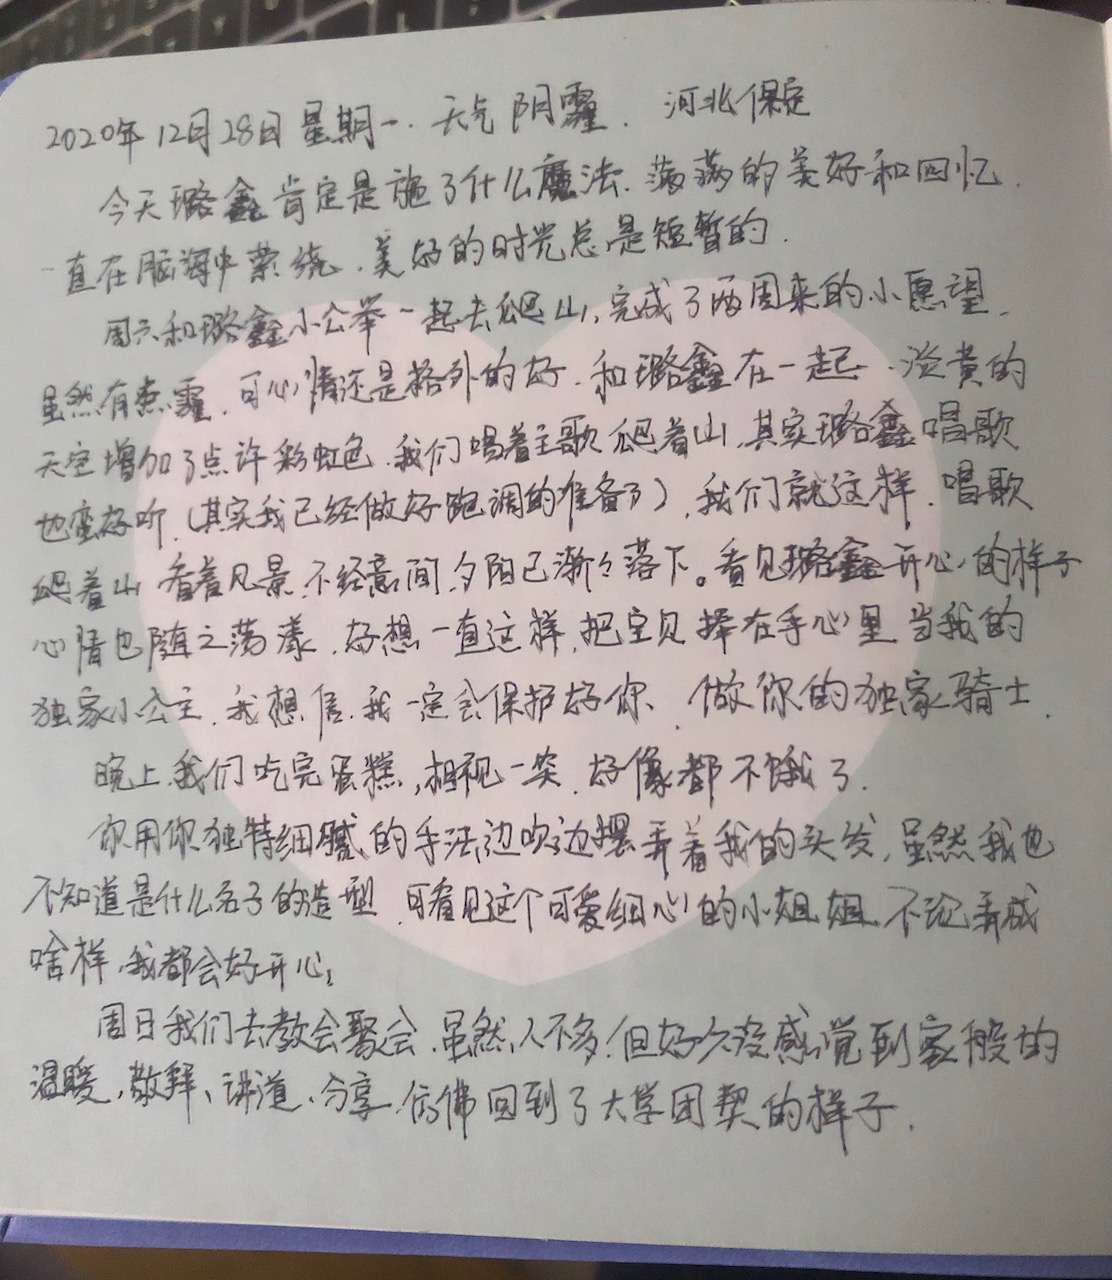 2020年12月28日 星期一. 天气 阴霾. 河北保定
今天璐鑫肯定是施了什么魔法. 满满的美好和回忆
一直在脑海中萦绕. 美好的时光总是短暂的.
周六和璐鑫小公举一起去爬山, 完成了两周来的小愿望.
虽然有点霾. 可心情还是格外的好. 和璐鑫在一起. 淡黄的
天空增加了点许彩虹色. 我们唱着主歌爬着山. 其实璐鑫唱歌
也蛮好听. (其实我已经做好跑调的准备了), 我们就这样. 唱歌
爬着山 看着风景. 不经意间 夕阳已渐々落下。看见璐鑫开心的样子
心情也随之荡漾. 好想一直这样, 把宝贝捧在手心里 当我的
独家小公主. 我想信. 我一定会保护好你. 做你的独家骑士.
晚上. 我们吃完蛋糕, 相视一笑. 好像都不饿了.
你用你独特细腻的手法边吹边摆弄着我的头发, 虽然我也
不知道是什么名子的造型. 可看见这个可爱细心的小姐姐 不论弄成
啥样. 我都会好开心;
周日我们去教会聚会. 虽然人不多. 但好久没感觉到家般的
温暖, 敬拜、讲道、分享. 仿佛回到了大学团契的样子.